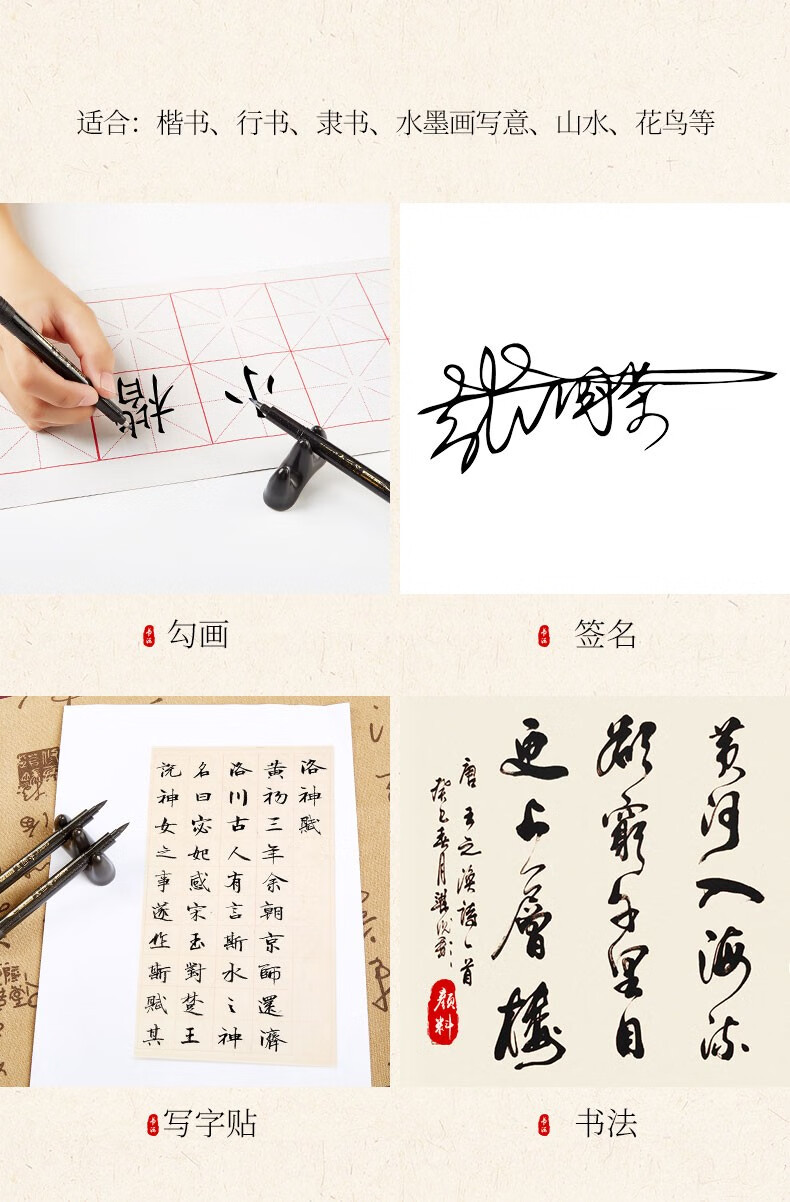 适合：楷书、行书、隶书、水墨画写意、山水、花鸟等
楷
小
书法
勾画
书法
签名
洛神赋
黄初三年余朝京師還濟
洛川古人有言斯水之神
名曰宓妃感宋玉對楚王
说神女之事遂作斯賦其
黄河入海流
欲窮千里目
更上一層樓
唐王之涣詩一首
癸巳春月
顔料
书法
写字贴
书法
书法